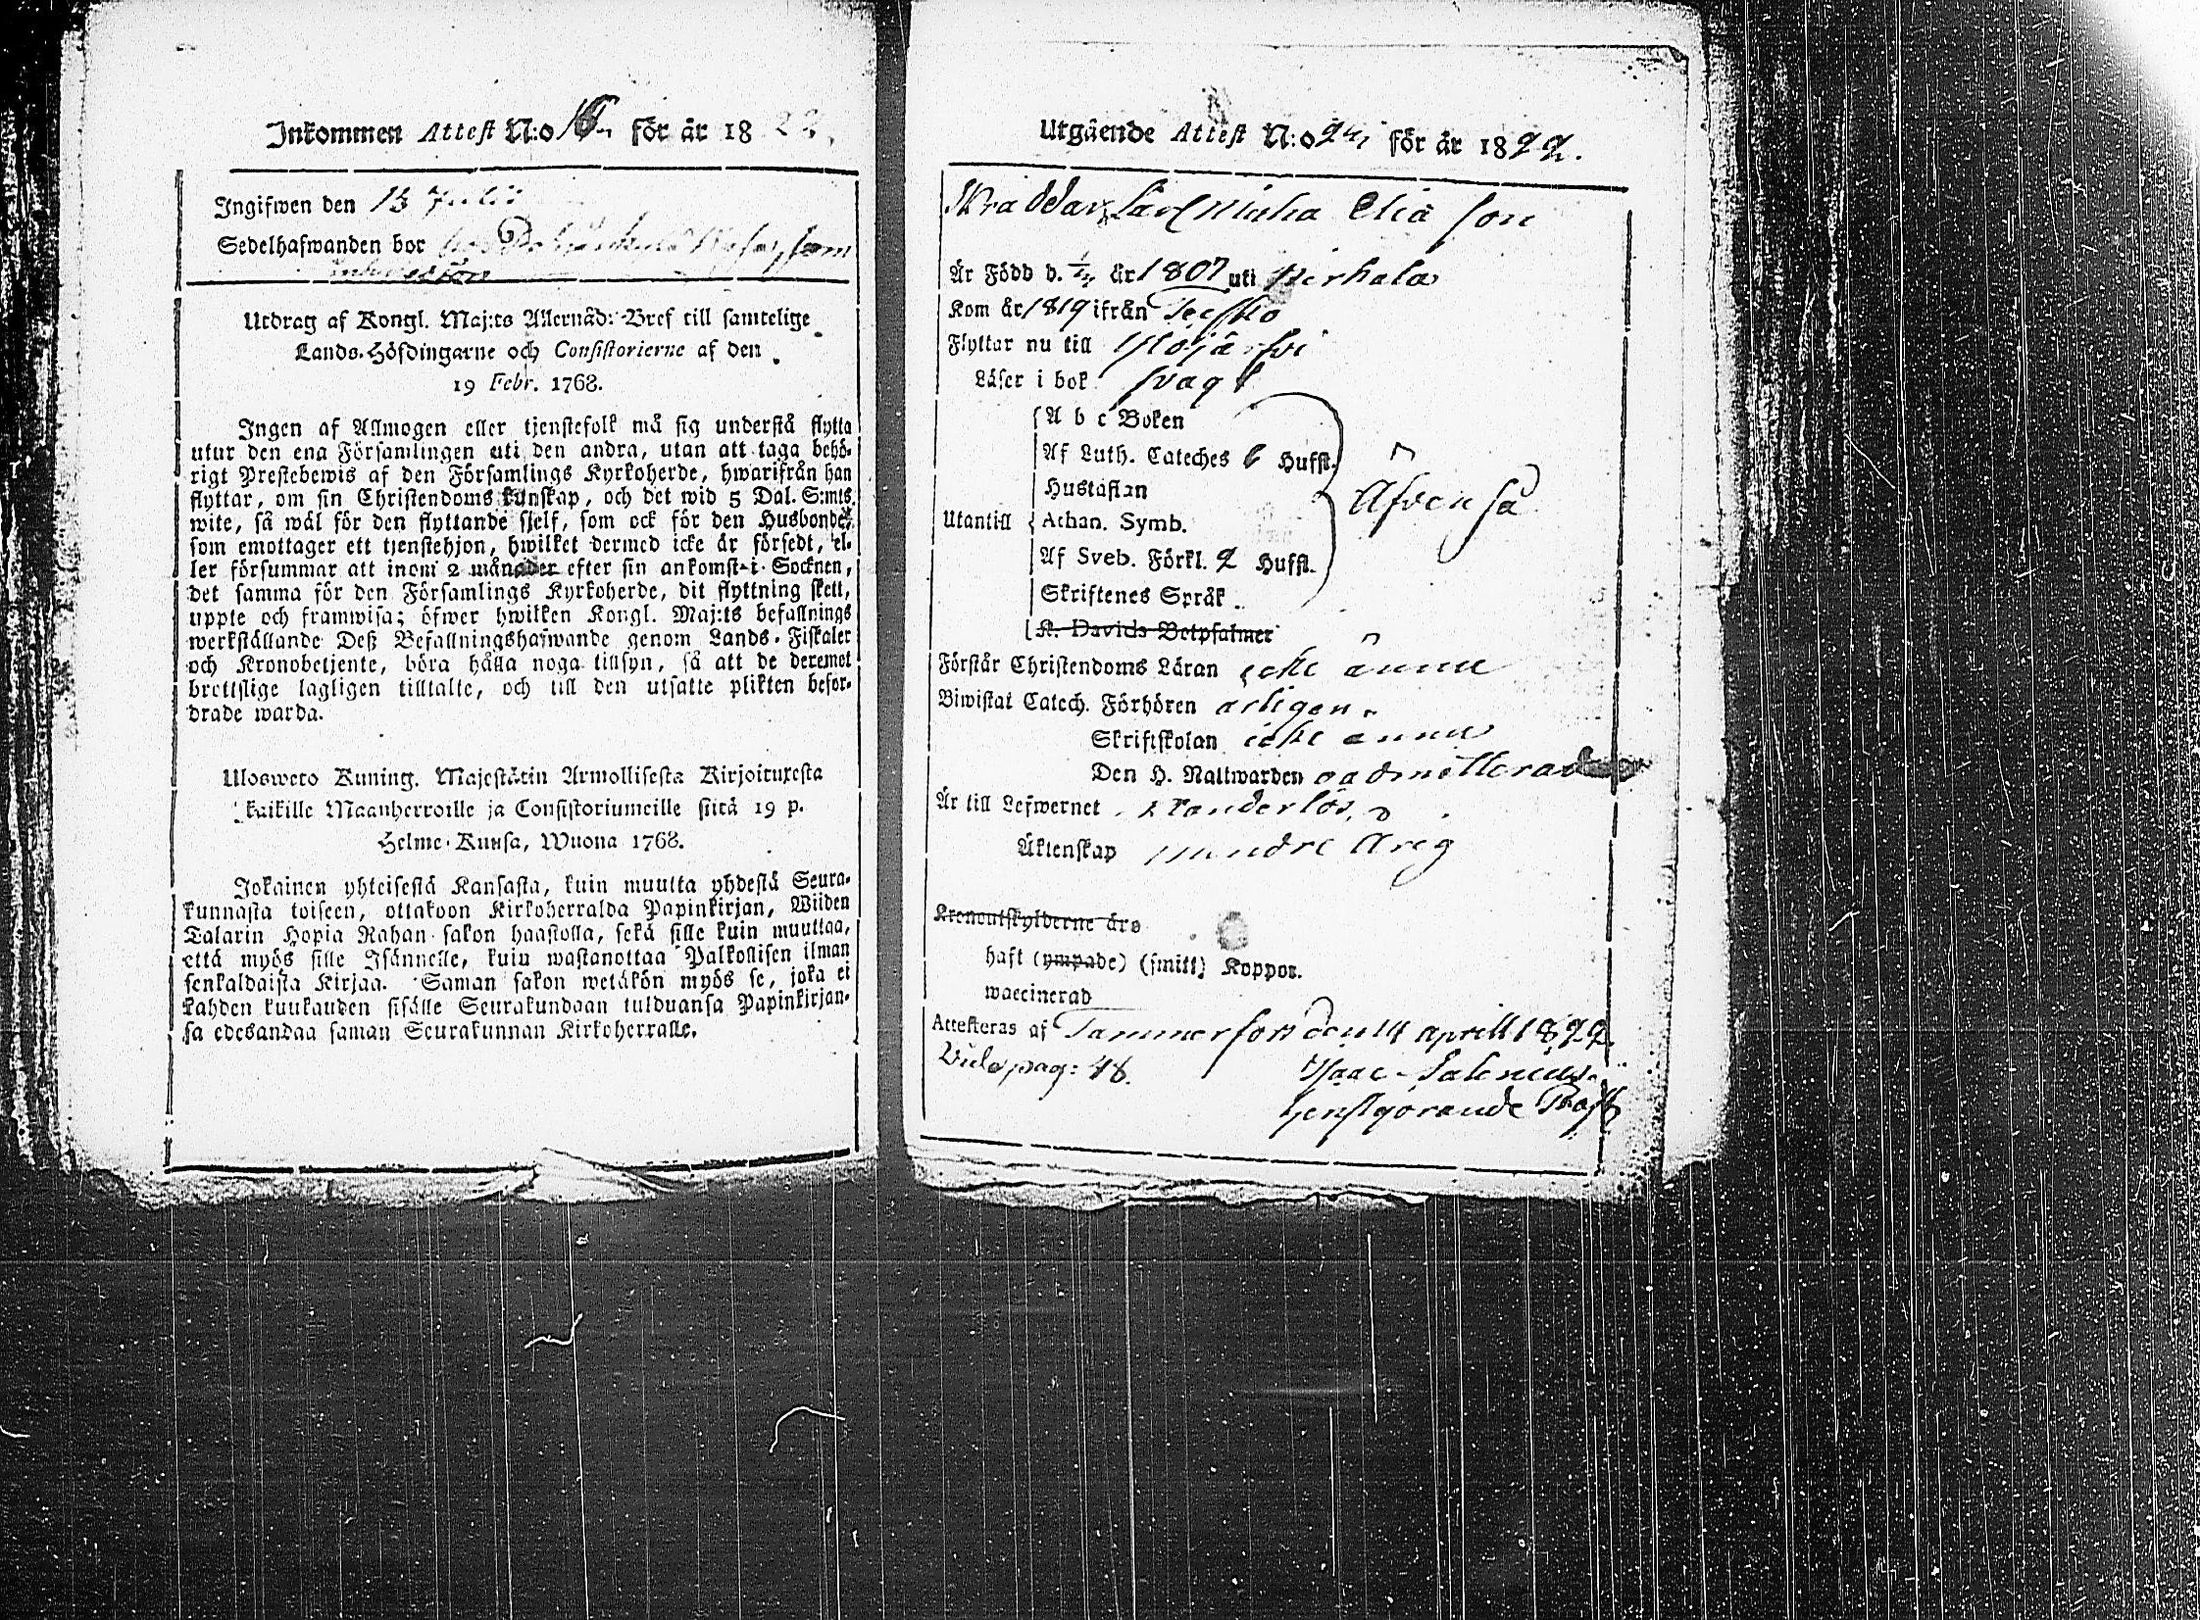 Inkommen Attest N:o 16 för år 1822.
Ingifwen den 13 Julii
Sedelhafwanden bor som
Utdrag af Kongl. Maj:ts Allernåd: Bref till samtelige
Lands-Höfdingarne och Consistorierne af den
19 Febr. 1768.
Ingen af Allmogen eller tjenstefolk må sig understå flytta
utur den ena Församlingen uti den andra, utan att taga behö-
rigt Prestebewis af den Församlings Kyrkoherde, hwarifrån han
flyttar, om sin Christendoms kunskap, och det wid 5 Dal. S:mts
wite, så wäl för den flyttande sjelf, som ock för den Husbonde,
som emottager ett tjenstehjon, hwilket dermed icke är försedt, el-
ler försummar att inom 2 månader efter sin ankomst i Socknen,
det samma för den Församlings Kyrkoherde, dit flyttning skett,
uppte och framwisa; öfwer hwilken Kongl. Maj:ts befallnings
werkställande Deß Befallningshafwande genom Lands-Fiskaler
och Kronobetjente, böra hålla noga tillsyn, så att de deremot
brottslige lagligen tilltalte, och till den utsatte plikten befor-
drade warda.
Ulosweto Kuning. Majestätin Armollisesta Kirjoituxesta
kaikille Maanherroille ja Consistoriumeille siitä 19 p.
Helme-Kuusa, Wuona 1768.
Jokainen yhteisestä Kansasta, kuin muutta yhdestä Seura-
kunnasta toiseen, ottakoon Kirkoherralda Papinkirjan, Wiiden
Talarin Hopia Rahan sakon haastolla, sekä sille kuin muuttaa,
että myös sille Isännelle, kuin wastanottaa Palkollisen ilman
senkaldaista Kirjaa. Saman sakon wetäkön myös se, joka ei
kahden kuukauden sisälle Seurakundaan tulduansa Papinkirjan-
sa edesandaa saman Seurakunnan Kirkoherralle.
Utgående Attest N:o 24, för år 1822.
Skraddar Elia son
Är Född d. år 1807 uti Pirkala
Kom år 1819 ifrån Teisko
Flyttar nu till Ylöjärfvi
Läser i bok svagt
A b c Boken
Af Luth. Cateches 6 Hufst.
Hustaflan
Utantill Athan. Symb. Äfven så
Af Sveb. Förkl. 2 Hufst.
Skriftenes Språk
K. Davids Botpsalmer
Förstår Christendoms Läran icke ännu
Biwistat Catech. Förhören årligen.
Skriftskolan icke ännu
Den H. Nattwarden oadmitterad
Är till Lefwernet klanderlös,
Äktenskap mindre årig
Kronoutskylderne äro
haft (ympade) (smitt) Koppor.
waccinerad
Attesteras af Tammerfors den 14 aprill 1822.
Vide pag: 48. Isaac Salenius
tjenstgörande Past